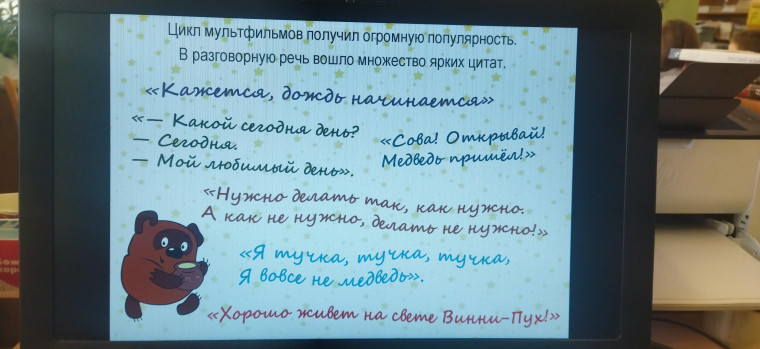 Цикл мультфильмов получил огромную популярность.
В разговорную речь вошло множество ярких цитат.
«Кажется, дождь начинается»
«— Какой сегодня день?
— Сегодня.
— Мой любимый день».
«Сова! Открывай!
Медведь пришёл!»
«Нужно делать так, как нужно.
А как не нужно, делать не нужно!»
«Я тучка, тучка, тучка,
Я вовсе не медведь».
«Хорошо живет на свете Винни-Пух!»